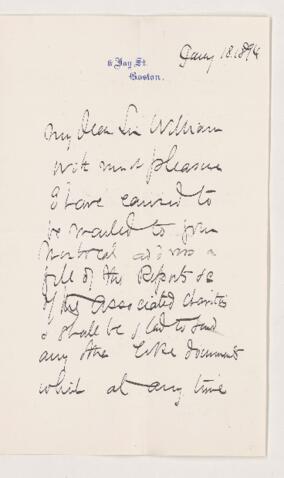 6 Joy St.
Boston.
Jany 18. 1894
My dear Sir William
With much pleasure
I have caused to
be mailed to your
Montreal address a
file of the Reports &c
of the Associated Charities
& shall be glad to send
any other like documents
which at any time